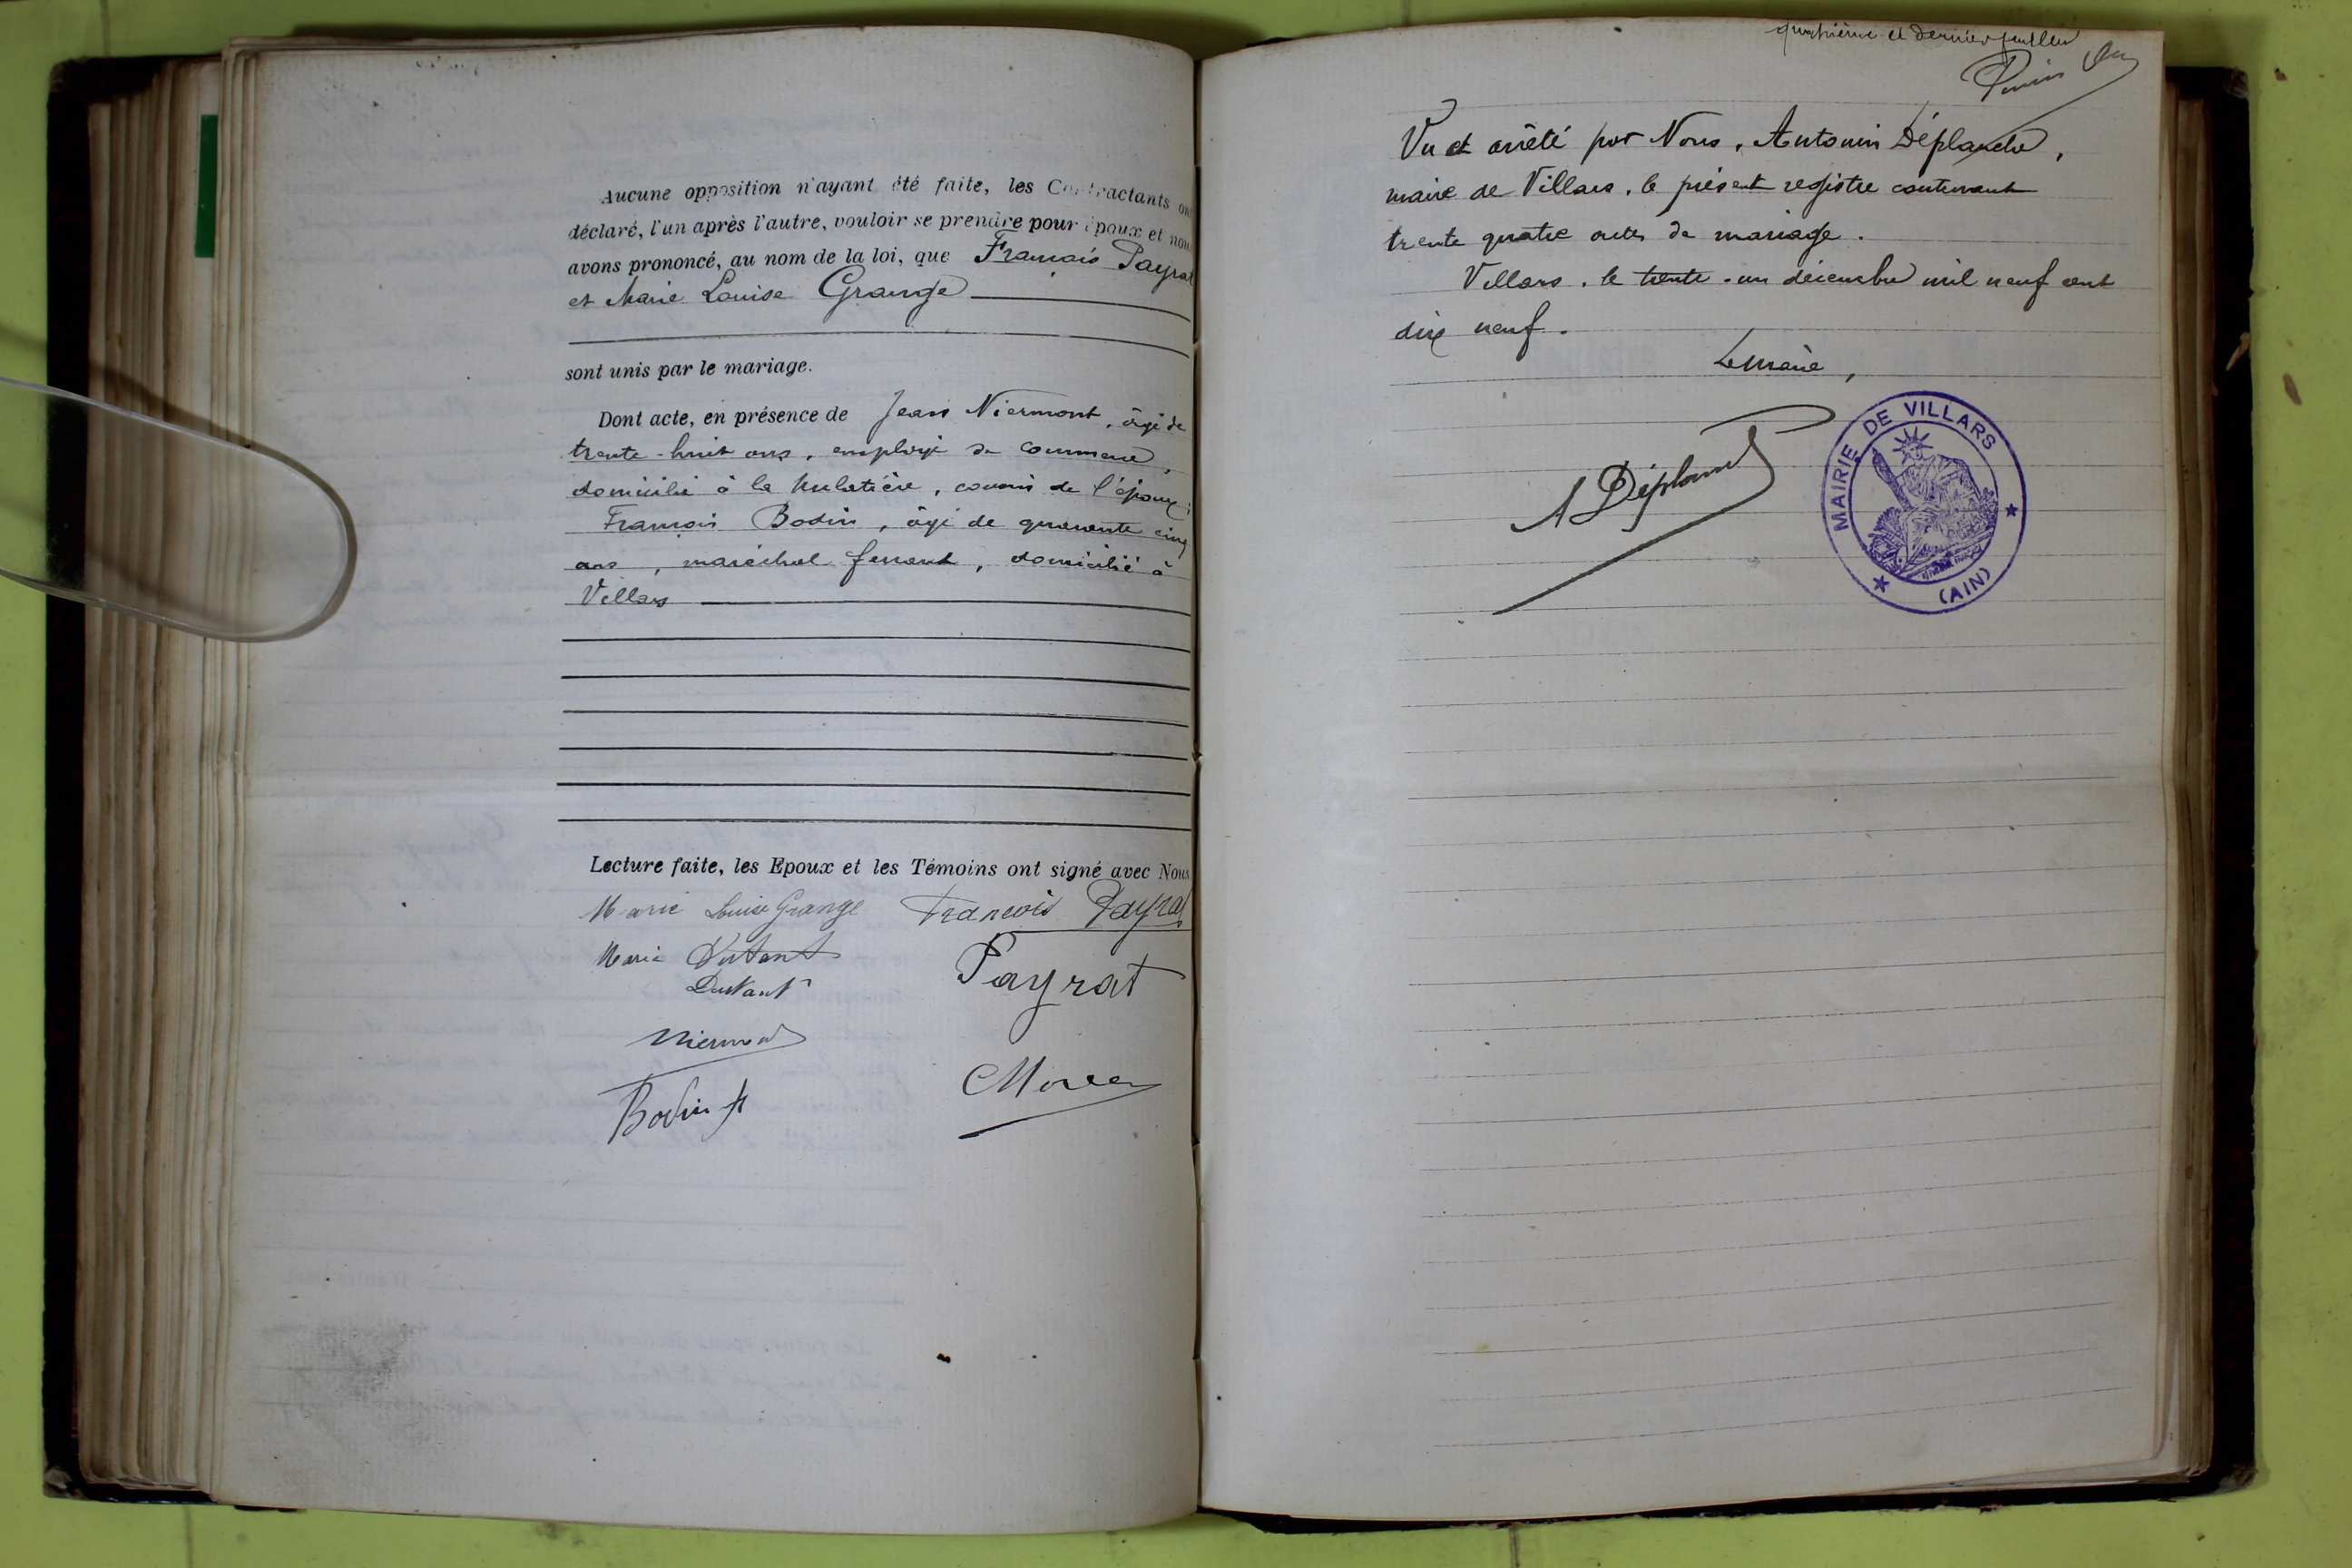 Aucune opposition n'ayant été faite, les Contractants ont
déclaré, l'un après l'autre, vouloir se prendre pour époux et nous
avons prononcé, au nom de la loi, que François Payrat
et Marie Louise Grange
sont unis par le mariage.
Dont acte, en présence de Jean Niermont, âgé de
trente-huit ans, employé de commerce,
domicilié à la Mulatière, cousin de l'époux;
François Bodin, âgé de quarante cinq
ans, maréchal ferrant, domicilié à
Villars
Lecture faite, les Epoux et les Témoins ont signé avec Nous
Marie Louise Grange François Payrat
Marie Dutant
Payrat
Bodin
quatrième et dernier feuillet
Vu et arrêté par Nous, Antonin Déplanche,
maire de Villars, le présent registre contenant
trente quatre actes de mariage.
Villars, le trente-un décembre mil neuf cent
dix neuf.
Le maire,
A Déplanche
MAIRIE DE VILLARS
(AIN)